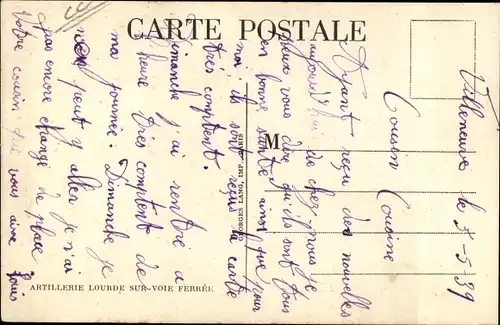 CARTE POSTALE
Villeneuve le 5-5-39
Cousin Cousine
Ayant reçu des nouvelles
aujourd'hui de chez nous je
peux vous dire qu'ils sont tous
en bonne santé ainsi que pour
moi ils sont reçus la carte
très comptent.
Dimanche j'ai rentré a
heure très comptent de
ma journée. Dimanche je
peut y aller je n'ai
pas encore changé de place
Votre cousin qui vous aime
Louis
M
GEORGES LANG, IMP. PARIS
ARTILLERIE LOURDE SUR VOIE FERRÉE